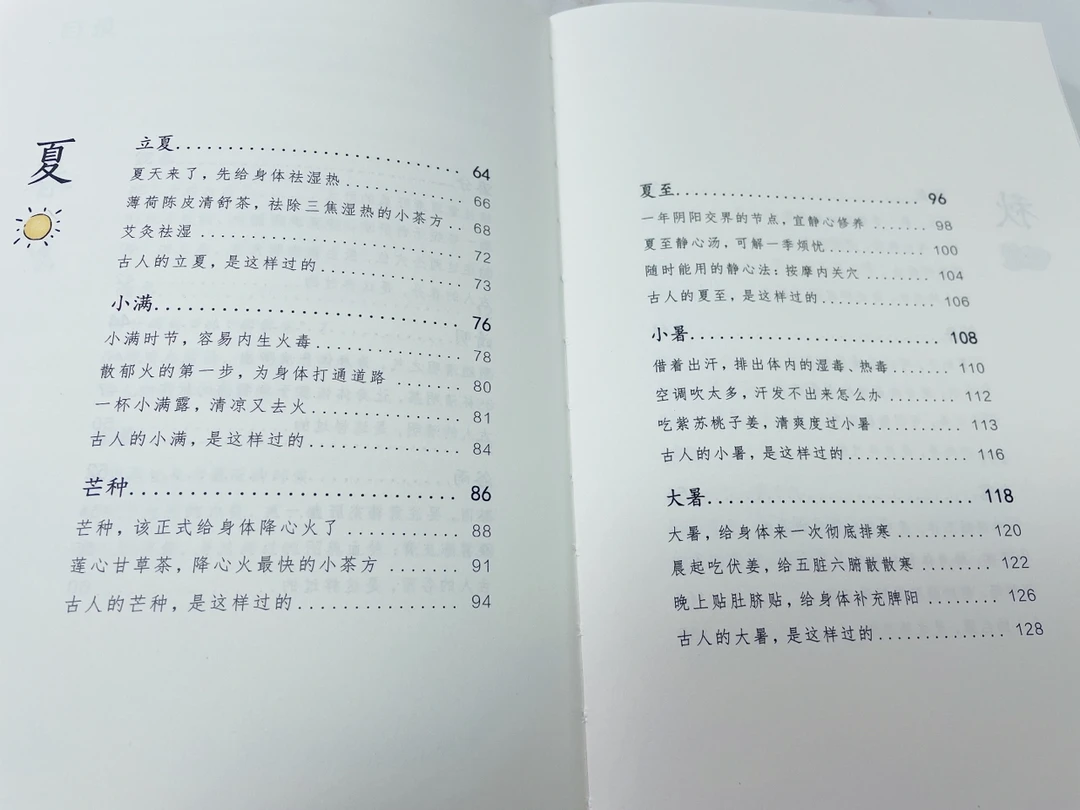 夏
立夏........................ 64
夏天来了，先给身体祛湿热............ 66
薄荷陈皮清舒茶，祛除三焦湿热的小茶方 .... 68
艾灸祛湿........................ 72
古人的立夏，是这样过的............ 73
小满........................ 76
小满时节，容易内生火毒............ 78
散郁火的第一步，为身体打通道路........ 80
一杯小满露，清凉又去火............ 81
古人的小满，是这样过的............ 84
芒种........................ 86
芒种，该正式给身体降心火了............ 88
莲心甘草茶，降心火最快的小茶方........ 91
古人的芒种，是这样过的............ 94
夏至........................ 96
一年阴阳交界的节点，宜静心修养....... 98
夏至静心汤，可解一季烦忧............ 100
随时能用的静心法：按摩内关穴......... 104
古人的夏至，是这样过的............ 106
小暑........................ 108
借着出汗，排出体内的湿毒、热毒....... 110
空调吹太多，汗发不出来怎么办........ 112
吃紫苏桃子姜，清爽度过小暑.......... 113
古人的小暑，是这样过的............ 116
大暑........................ 118
大暑，给身体来一次彻底排寒.......... 120
晨起吃伏姜，给五脏六腑散散寒......... 122
晚上贴肚脐贴，给身体补充脾阳......... 126
古人的大暑，是这样过的............ 128